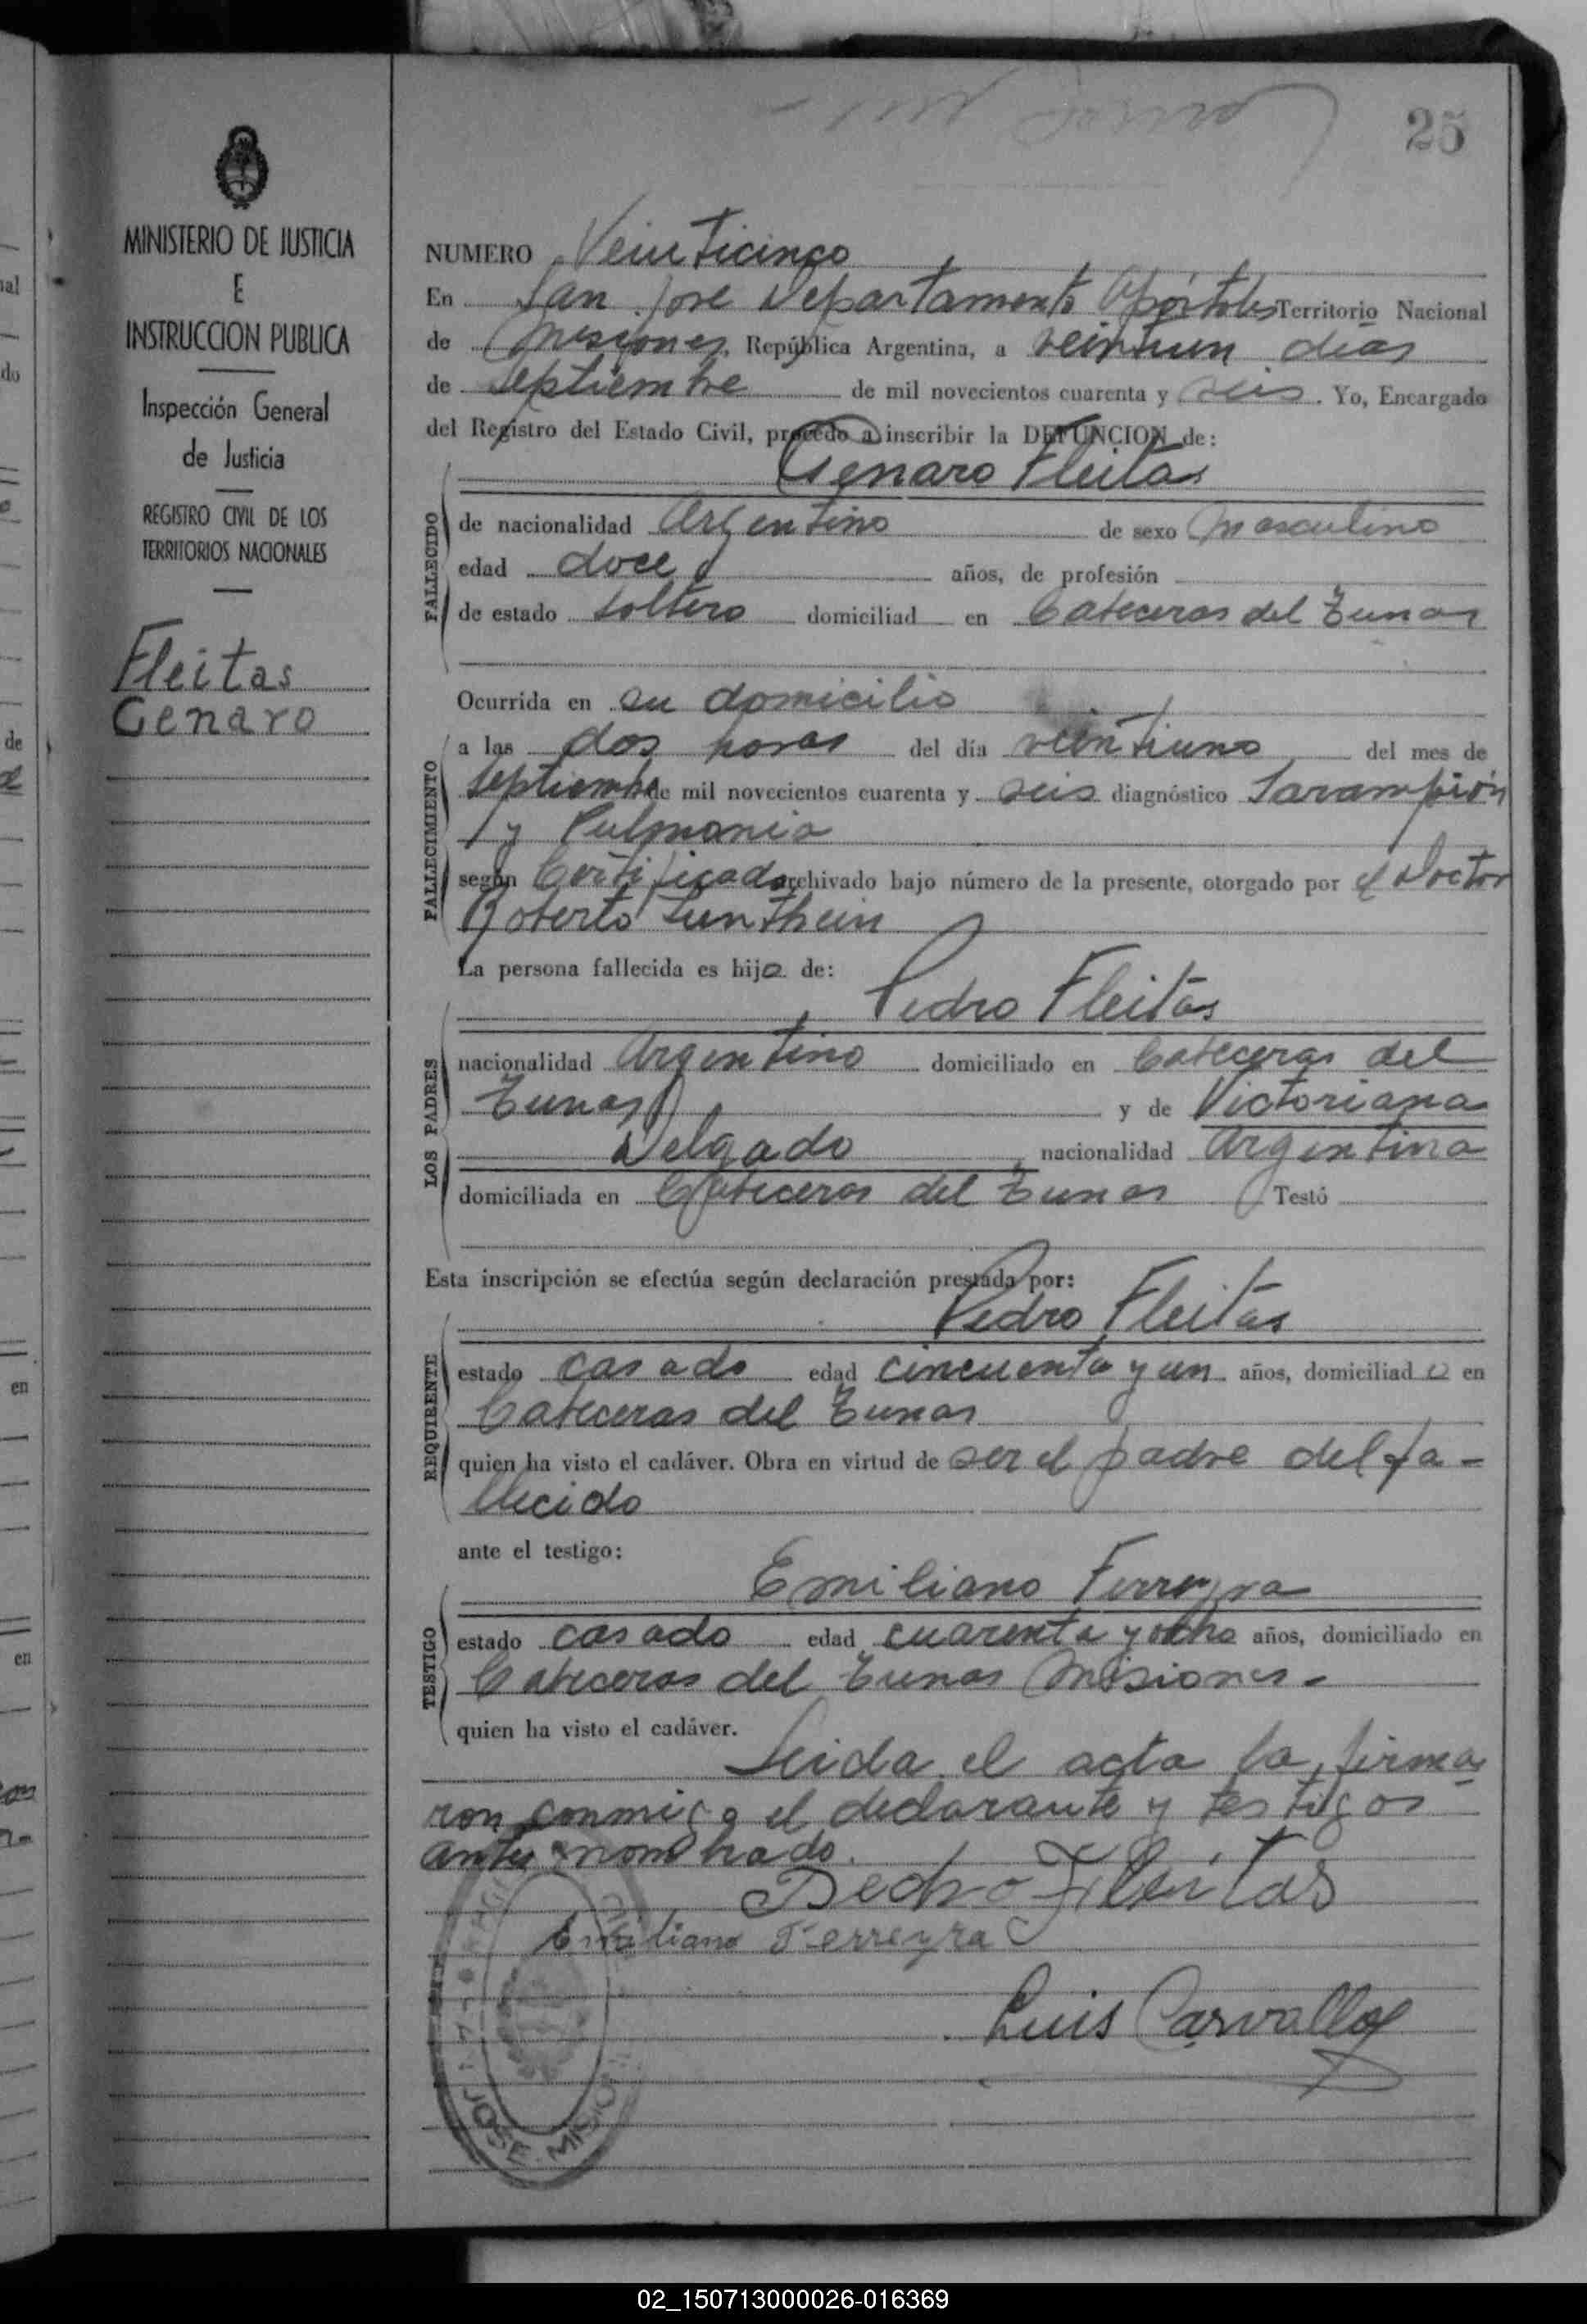 25
MINISTERIO DE JUSTICIA
E
INSTRUCCION PUBLICA
Inspección General
de Justicia
REGISTRO CIVIL DE LOS
TERRITORIOS NACIONALES
Fleitas
Genaro
NUMERO Veinticinco
En San José Departamento Apóstoles Territorio Nacional
de Misiones, República Argentina, a veintiun dias
de Septiembre de mil novecientos cuarenta y seis. Yo, Encargado
del Registro del Estado Civil, procedo a inscribir la DEFUNCION de:
Genaro Fleitas
FALLECIDO
de nacionalidad Argentino de sexo masculino
edad doce años, de profesión
de estado soltero domiciliad en Cabeceras del Tunas
Ocurrida en su domicilio
FALLECIMIENTO
a las dos horas del día veintiuno del mes de
Septiembre de mil novecientos cuarenta y seis diagnóstico Sarampión
y Pulmonia
según Certificado archivado bajo número de la presente, otorgado por el Doctor
Roberto
La persona fallecida es hijo de:
Pedro Fleitas
LOS PADRES
nacionalidad Argentino domiciliado en Cabeceras del
Tunas y de Victoriana
Delgado nacionalidad Argentina
domiciliada en Cabeceras del Tunas Testó
Esta inscripción se efectúa según declaración prestada por:
Pedro Fleitas
REQUIRENTE
estado casado edad cincuenta y un años, domiciliad o en
Cabeceras del Tunas
quien ha visto el cadáver. Obra en virtud de ser el padre del fa-
llecido
ante el testigo:
Emiliano Ferreyra
TESTIGO
estado casado edad cuarenta y ocho años, domiciliado en
Cabeceras del Tunas Misiones.-
quien ha visto el cadáver.
Leida el acta la firma
ron conmigo el declarante y testigos
antes nombrado.
Pedro Fleitas
Emiliano Ferreyra
Luis Carvallo
JOSE. MISIO
02_150713000026-016369